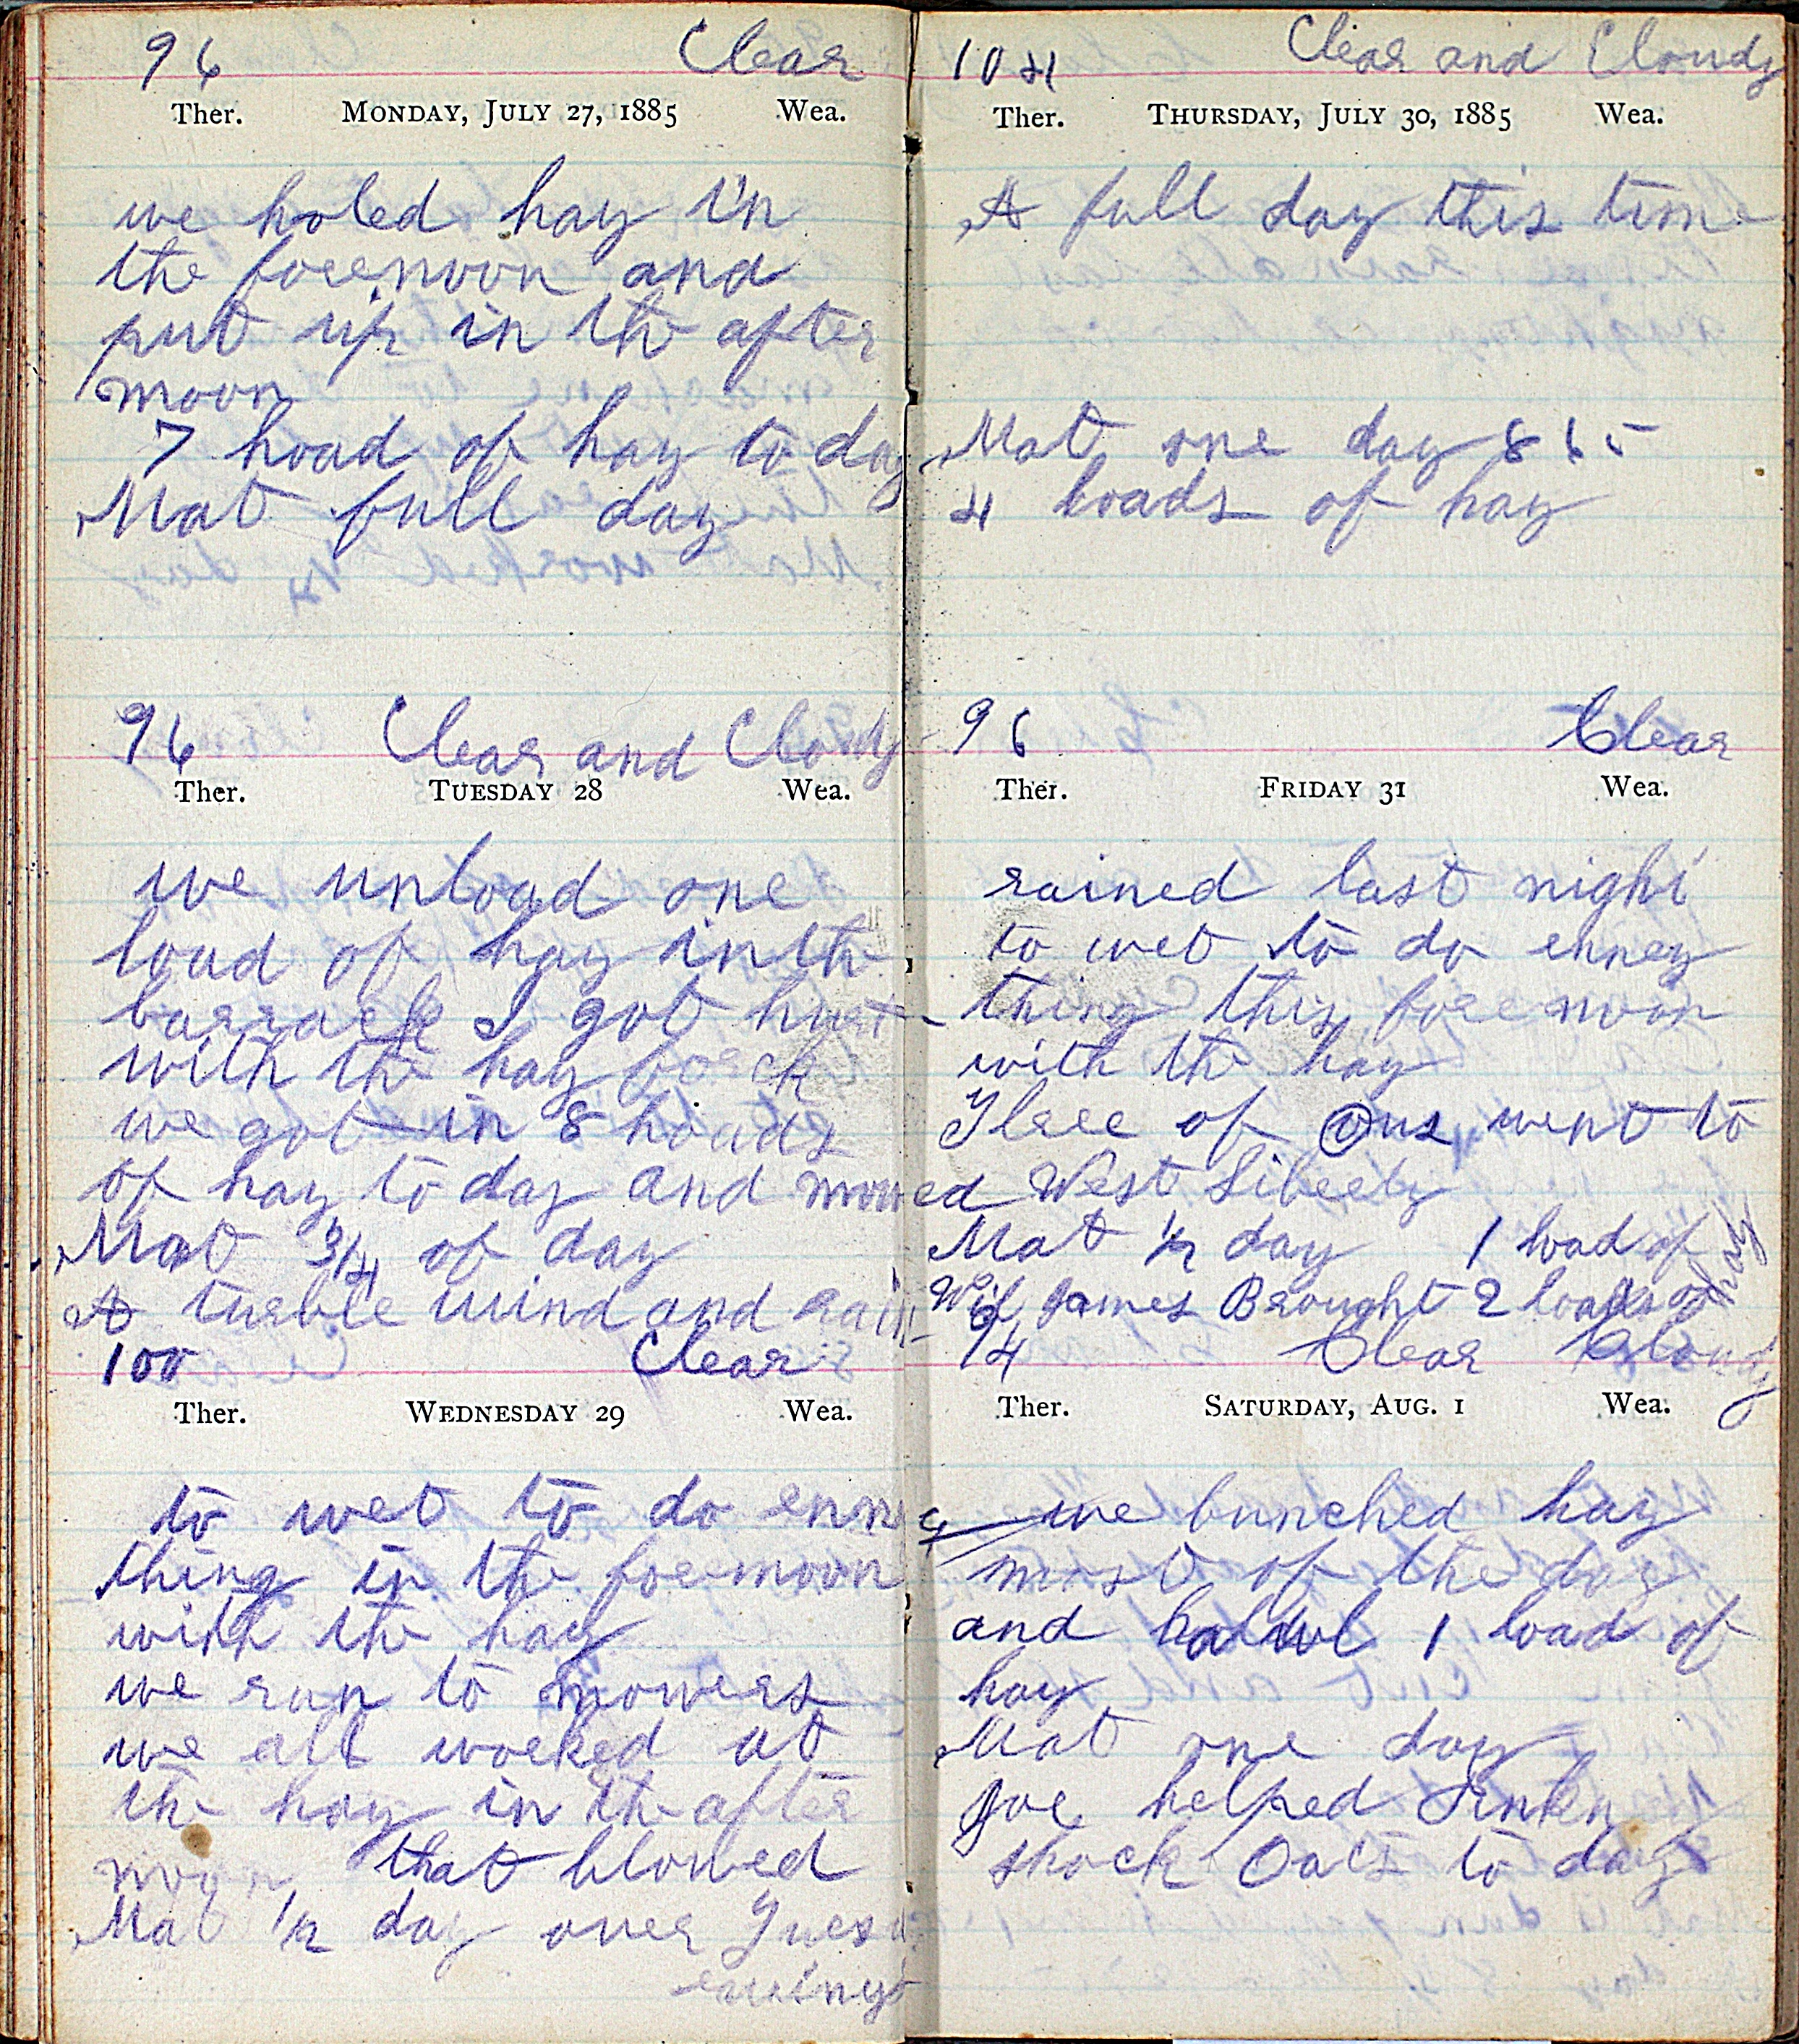 96 Clear
Ther. MONDAY, JULY 27, 1885 Wea.
we holed hay in
the forenoon and
put up in the after
moon
7 hoad of hay to day
Mat full day
96 Clear and Cloudy
Ther. TUESDAY 28 Wea.
we unload one
load of hay in the
barrack I got hurt
with the hay
we got in 8 hoads
of hay to day and mowed
Mat 3/4 of day
A turble wind and rain
100 Clear
Ther. WEDNESDAY 29 Wea.
to wet to do enny
thing in the foremoon
with the hay
we run to mowers
we all worked at
the hay in the after
noon that blowed
Mat 1/2 day over Tuesd

104 Clear and Cloudy
Ther. THURSDAY, JULY 30, 1885 Wea.
A full day this time
Mat one day
4 loads of hay
96 Clear
Ther. FRIDAY 31 Wea.
rained last night
to wet to do enney
thing this forenoon
with the hay
Three of ous went to
West Liberty
Mat 1/2 day 1 load of hay
James Brought 2 loads of
94 Clear Cloudy
Ther. SATURDAY, AUG. 1 Wea.
we bunched hay
most of the day
and 1 load of
hay
Mat one day
Joe helped
shock Oats to day